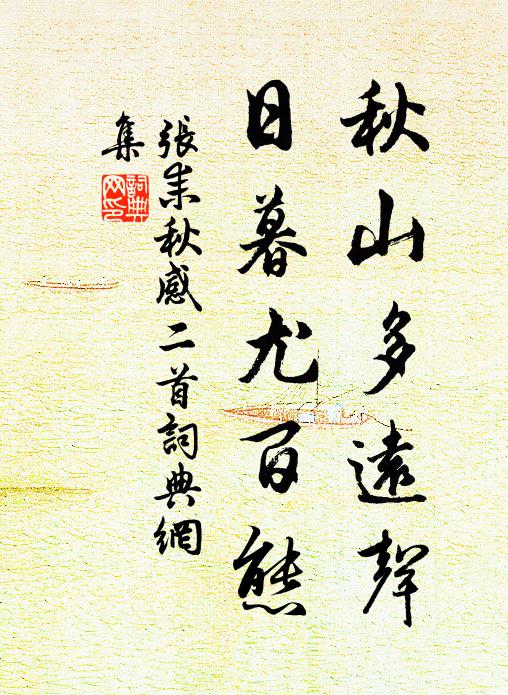 秋山多遠聲
日暮尤百態
張耒秋感二首詞典網
集
詞典
网印